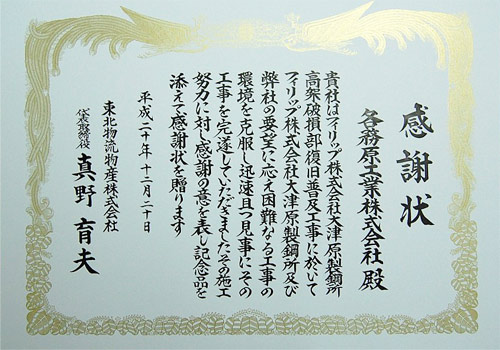 感謝状
各務原土業株式会社 殿
貴社はフィリップ株式会社大津原製鋼所
高架破損部復旧普及工事に於いて
フィリップ株式会社大津原製鋼所及び
弊社の要望に応え困難なる工事の
環境を克服し迅速且つ見事にその
工事を完遂していただきましたその施工
努力に対し感謝の意を表し記念品を
添えて感謝状を贈ります
平成二十年 十二月二十日
東北物流物産株式会社
代表取締役 真野 育夫